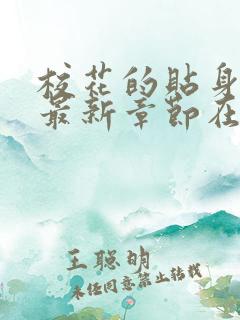 校花的贴身
最新章节在
王聪明
未经同意禁止转载